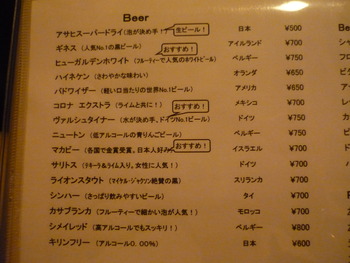 Beer
アサヒスーパードライ (泡が決め手！ 生ビール！ 日本 ¥500
ギネス (人気No.1の黒ビール) アイルランド ¥700
おすすめ！
ヒューガルデンホワイト (フルーティーで人気のホワイトビール ベルギー ¥750
ハイネケン (さわやかな味わい) オランダ ¥650
バドワイザー (軽い口当たりの世界No.1ビール) アメリカ ¥650
コロナ エクストラ (ライムと共に！) メキシコ ¥700
おすすめ！
ヴァルシュタイナー (水が決め手、ドイツNo.1ビール) ドイツ ¥750
ニュートン (低アルコールの青りんごビール) ベルギー ¥750
マカビー (各国で金賞受賞。日本人好み) イスラエル ¥700
おすすめ！
サリトス (テキーラ&ライム入り。女性に人気！) ドイツ ¥700
ライオンスタウト (マイケル・ジャクソン絶賛の黒) スリランカ ¥700
シンハー (さっぱり飲みやすいビール) タイ ¥700
カサブランカ (フルーティーで細かい泡が人気！) モロッコ ¥700
シメイレッド (高アルコールでもスッキリ！) ベルギー ¥800
キリンフリー (アルコール0.00%) 日本 ¥600